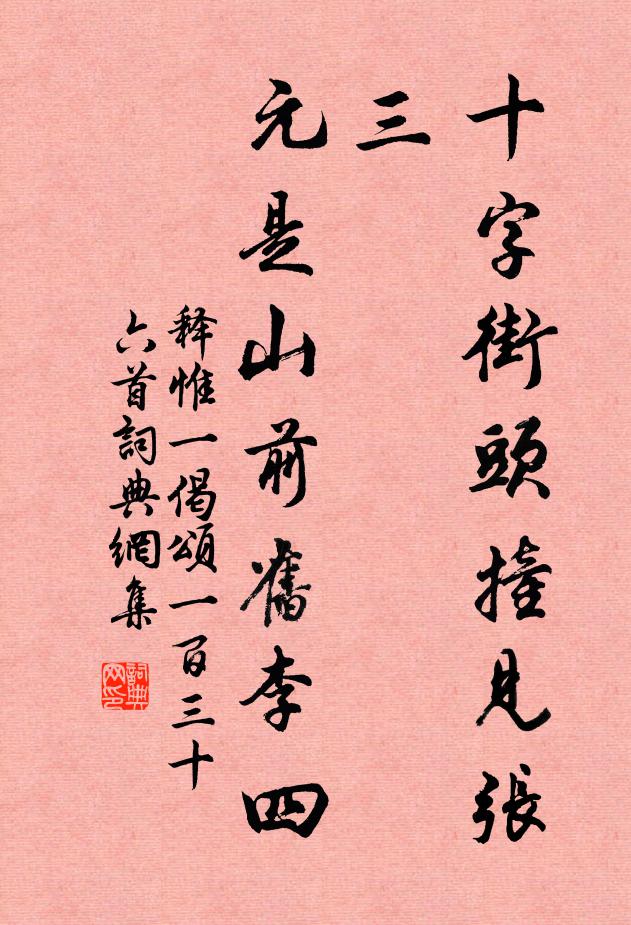 十字街頭撞見張
三
元是山前舊李四
释惟一偈頌一百三十
六首詞典網集
詞典
网印